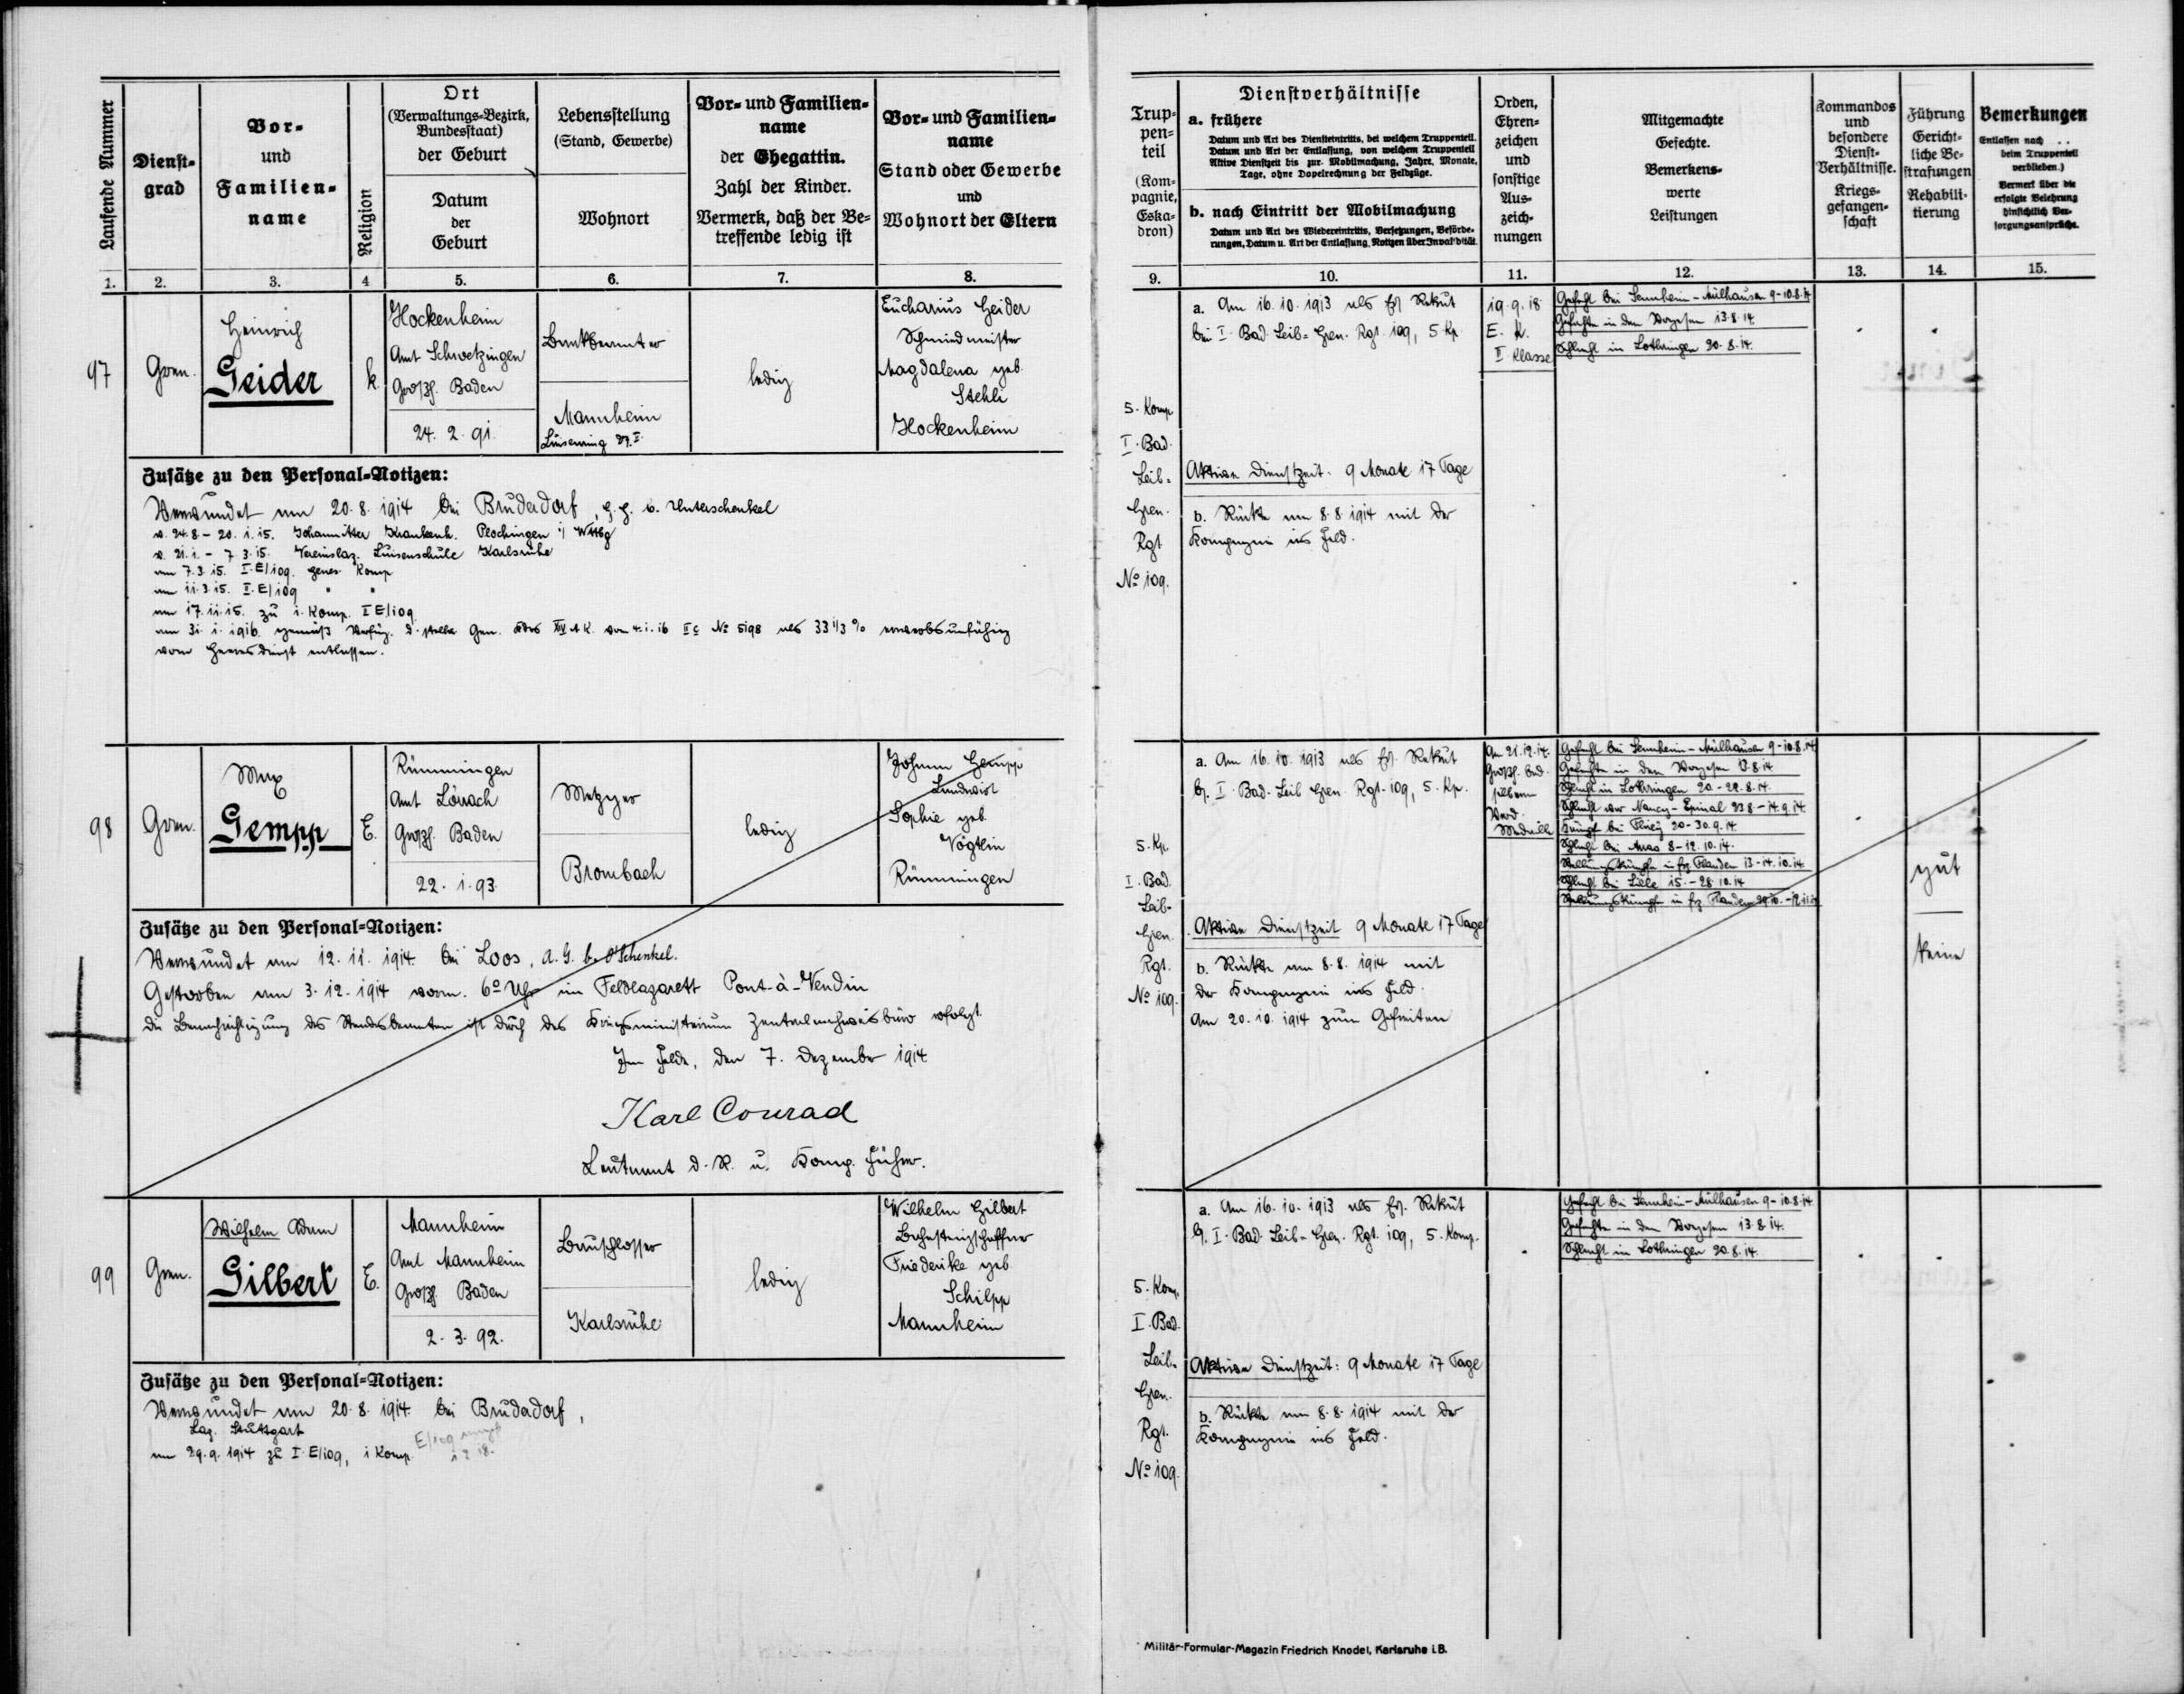 Laufende Nummer
Dienst-
grad
Vor-
und
Familien-
name
Religion
Ort
(Verwaltungs-Bezirk,
Bundesstaat)
der Geburt
Datum
der
Geburt
Lebensstellung
(Stand, Gewerbe)
Wohnort
Vor- und Familien-
name
der Ehegattin.
Zahl der Kinder.
Vermerk, daß der Be-
treffende ledig ist
Vor- und Familien-
name
Stand oder Gewerbe
und
Wohnort der Eltern
1. 2. 3. 4 5. 6. 7. 8.
97
Gren.
Heinrich
Geider
k.
Hockenheim
Amt Schwetzingen
Großh. Baden
24. 2. 91.
Bankbeamter
Mannheim
Luisenring
ledig
Eucharius Geider
Schmiedmeister
Magdalena geb.
Stehli
Hockenheim
Zusätze zu den Personal-Notizen:
Verwundet am 20. 8. 1914 bei Bruderdorf, G. G. b. Unterschenkel
v. 24. 8 - 20. 1. 15. Johanniter Krankenh. Plochingen i/ Wttbg
v. 21. 1. - 7. 3. 15. Vereinslaz. Luisenschule Karlsruhe
am 7. 3. 15. I. E/109. Genes. Komp
am 11. 3. 15. I. E/109 " "
am 17. 11. 15. zu 1. Komp. I E/109
am 31. 1. 1916. gemäß Verfüg. d. stellv. Gen. Kdos XIV A K. vom 4. 1. 16 II c No 5198 als 33 1/3 % erwerbsunfähig
vom Heeresdienst entlassen.
98
Gren.
Max
Gempp
E.
Rümmingen
Amt Lörrach
Großh. Baden
22. 1. 93.
Metzger
Brombach
ledig
Johann Gempp
Landwirt
Sophie geb.
Vögtlin
Rümmingen
Zusätze zu den Personal-Notizen:
Verwundet am 12. 11. 1914. bei Loos, A. G. b. O'Schenkel.
Gestorben am 3. 12. 1914 vorm. 6° Uhr im Feldlazarett Pont-à-Vendin
Die Benachrichtigung des Standesbeamten ist durch das Kriegsministerium Zentralnachweisbüro erfolgt.
Im Felde, den 7. Dezember 1914
Karl Conrad
Leutnant d. R. u. Komp. Führer.
99
Gren.
Wilhelm Adam
Gilbert
E.
Mannheim
Amt Mannheim
Großh. Baden
2. 3. 92.
Bauschlosser
Karlsruhe
ledig
Wilhelm Gilbert
Bahnsteigschaffner
Friederike geb.
Schilpp
Mannheim
Zusätze zu den Personal-Notizen:
Verwundet am 20. 8. 1914. bei Bruderdorf,
Laz. Stuttgart
am 29. 9. 1914 zu I. E/109, 1 Komp.
E/109
Trup-
pen-
teil
(Kom-
pagnie,
Eska-
dron)
Dienstverhältnisse
a. frühere
Datum und Art des Diensteintritts, bei welchem Truppenteil.
Datum und Art der Entlassung, von welchem Truppenteil
Aktive Dienstzeit bis zur Mobilmachung, Jahre, Monate,
Tage, ohne Dopelrechnung der Feldzüge.
b. nach Eintritt der Mobilmachung
Datum und Art des Wiedereintritts, Versetzungen, Beförde-
rungen, Datum u. Art der Entlassung, Notizen über Invalidität.
Orden,
Ehren-
zeichen
und
sonstige
Aus-
zeich-
nungen
Mitgemachte
Gefechte.
Bemerkens-
werte
Leistungen
Kommandos
und
besondere
Dienst-
Verhältnisse.
Kriegs-
gefangen-
schaft
Führung
Gericht-
liche Be-
strafungen
Rehabili-
tierung
Bemerkungen
Entlassen nach . .
beim Truppenteil
verblieben.)
Vermerk über die
erfolgte Belehrung
hinsichtlich Ver-
sorgungsansprüche.
9. 10. 11. 12. 13. 14. 15.
5. Komp
I. Bad.
Leib-
Gren.
Rgt
No 109.
a. Am 16. 10. 1913 als Ers. Rekrut
bei I. Bad. Leib-Gren. Rgt. 109, 5. Kp.
Aktive Dienstzeit: 9 Monate 17 Tage
b. Rückte am 8. 8. 1914 mit der
Kompagnie ins Feld.
19. 9. 18.
E. K.
II Klasse
Gefecht bei Sennheim-Mülhausen 9-10.8.14
Gefechte in den Vogesen 13. 8. 14.
Schlacht in Lothringen 20. 8. 14.
5. Kp.
I. Bad.
Leib-
Gren.
Rgt.
No 109.
a. Am 16. 10. 1913 als Ers. Rekrut
b. I. Bad. Leib Gren. Rgt. 109, 5. Kp.
Aktive Dienstzeit 9 Monate 17 Tage
b. Rückte am 8. 8. 1914 mit
der Kompagnie ins Feld.
Am 20. 10. 1914 zum Gefreiten
Am 21. 12. 14.
Großh. Bad.
silberne
Verd.
Medaille
Gefecht bei Sennheim-Mülhausen 9-10.8.14
Gefechte in den Vogesen 13. 8. 14
Schlacht in Lothringen 20.-22. 8. 14.
Schlacht vor Nancy-Epinal 23 8. - 14. 9. 14.
Kämpfe bei Flirey 20-30. 9. 14.
Schlacht bei Arras 8-12. 10. 14.
Stellungskämpfe in frz. Flandern 13-14. 10. 14.
Schlacht bei Lille 15. - 28. 10. 14
Stellungskämpfe in frz. Flandern
gut
keine
5. Komp.
I. Bad.
Leib-
Gren.
Rgt.
No 109.
a. Am 16. 10. 1913 als Ers. Rekrut
b. I. Bad. Leib-Gren. Rgt. 109, 5. Komp.
Aktive Dienstzeit: 9 Monate 17 Tage
b. Rückte am 8. 8. 1914 mit der
Kompagnie ins Feld.
Gefecht bei Sennheim-Mülhausen 9-10.8.14
Gefechte in den Vogesen 13. 8. 14.
Schlacht in Lothringen 20. 8. 14.
Militär-Formular-Magazin Friedrich Knodel, Karlsruhe i.B.